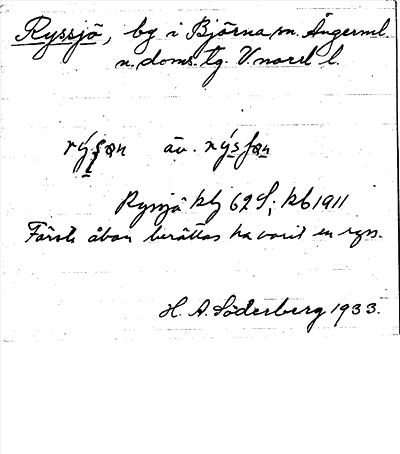 Ryssjö, by i Björna sn. Ångerml.
n. doms. tg. V.norrl l.
äv.
Ryssjö klj 62 S; kb 1911
Förste åbon berättas ha varit en ryss.
H. A. Söderberg 1933.